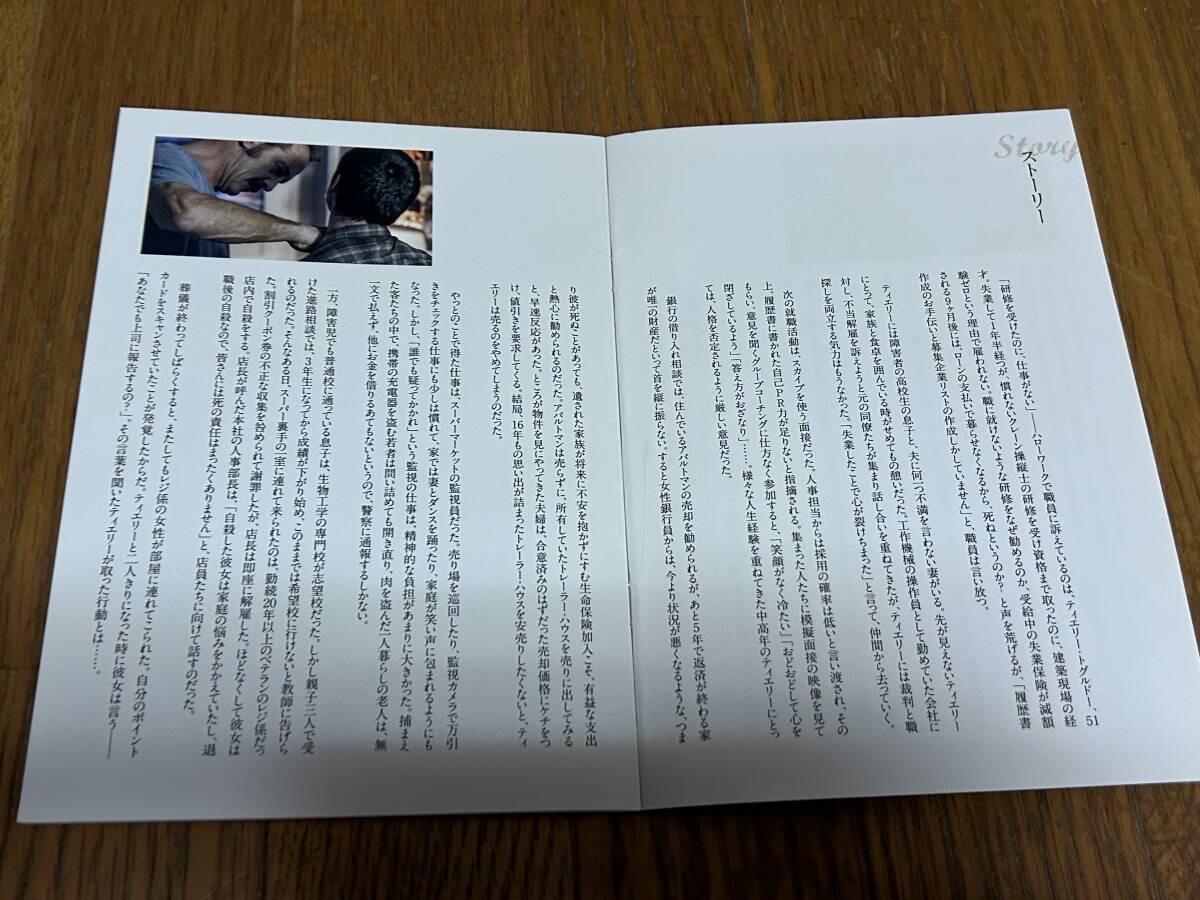 Story
ストーリー
「研修を受けたのに、仕事がない」――ハローワークで職員に訴えているのは、ティエリー・トグルドー、51
才。失業して1年半経つが、慣れないクレーン操縦士の研修を受け資格まで取ったのに、建築現場の経
験ゼロという理由で雇われない。職に就けないような研修をなぜ勧めるのか、受給中の失業保険が減額
される9ヶ月後には、ローンの支払いで暮らせなくなるから、死ねというのか？ と声を荒げるが、「履歴書
作成のお手伝いと募集企業リストの作成しかしていません」と、職員は言い放つ。
ティエリーには障害者の高校生の息子と、夫に何一つ不満を言わない妻がいる。先が見えないティエリー
にとって、家族と食卓を囲んでいる時がせめてもの憩いだった。工作機械の操作員として勤めていた会社に
対し、不当解雇を訴えようと元の同僚たちが集まり話し合いを重ねてきたが、ティエリーには裁判と職
探しを両立する気力はもうなかった。「失業したことで心が裂けちまった」と言って、仲間から去っていく。
次の就職活動は、スカイプを使う面接だった。人事担当からは採用の確率は低いと言い渡され、その
上、履歴書に書かれた自己PR力が足りないと指摘される。集まった人たちに模擬面接の映像を見て
もらい、意見を聞くグループコーチングに仕方なく参加すると、「笑顔がなく冷たい」「おどおどして心を
閉ざしているよう」「答え方がおざなり」……。様々な人生経験を重ねてきた中高年のティエリーにとっ
ては、人格を否定されるように厳しい意見だった。
銀行の借り入れ相談では、住んでいるアパルトマンの売却を勧められるが、あと5年で返済が終わる家
が唯一の財産だといって首を縦に振らない。すると女性銀行員からは、今より状況が悪くなるような、つま
り彼が死ぬことがあっても、遺された家族が将来に不安を抱かずにすむ生命保険加入こそ、有益な支出
と熱心に勧められるのだった。アパルトマンは売らずに、所有していたトレーラー・ハウスを売りに出してみる
と、早速反応があった。ところが物件を見にやってきた夫婦は、合意済みのはずだった売却価格にケチをつ
け、値引きを要求してくる。結局、16年もの思い出が詰まったトレーラー・ハウスを安売りしたくないと、ティ
エリーは売るのをやめてしまうのだった。
やっとのことで得た仕事は、スーパーマーケットの監視員だった。売り場を巡回したり、監視カメラで万引
きをチェックする仕事にも少しは慣れて、家では妻とダンスを踊ったり、家庭が笑い声に包まれるようにも
なった。しかし、「誰でも疑ってかかれ」という監視の仕事は、精神的な負担があまりに大きかった。捕まえ
た客たちの中で、携帯の充電器を盗む若者は問い詰めても開き直り、肉を盗んだ一人暮らしの老人は、無
一文で払えず、他にお金を借りるあてもないというので、警察に通報するしかない。
一方、障害児でも普通校に通っている息子は、生物工学の専門校が志望校だった。しかし親子三人で受
けた進路相談では、3年生になってから成績が下がり始め、このままでは希望校に行けないと教師に告げら
れるのだった。そんなある日、スーパー裏手の一室に連れて来られたのは、勤続20年以上のベテランのレジ係だっ
た。割引クーポン券の不正な収集を咎められて謝罪したが、店長は即座に解雇した。ほどなくして彼女は
店内で自殺をする。店長が呼んだ本社の人事部長は、「自殺した彼女は家庭の悩みをかかえていたし、退
職後の自殺なので、皆さんには死の責任はまったくありません」と、店員たちに向けて話すのだった。
葬儀が終わってしばらくすると、またしてもレジ係の女性が部屋に連れてこられた。自分のポイント
カードをスキャンさせていたことが発覚したからだ。ティエリーと二人きりになった時に彼女は言う――
「あなたでも上司に報告するの？」。その言葉を聞いたティエリーが取った行動とは……。